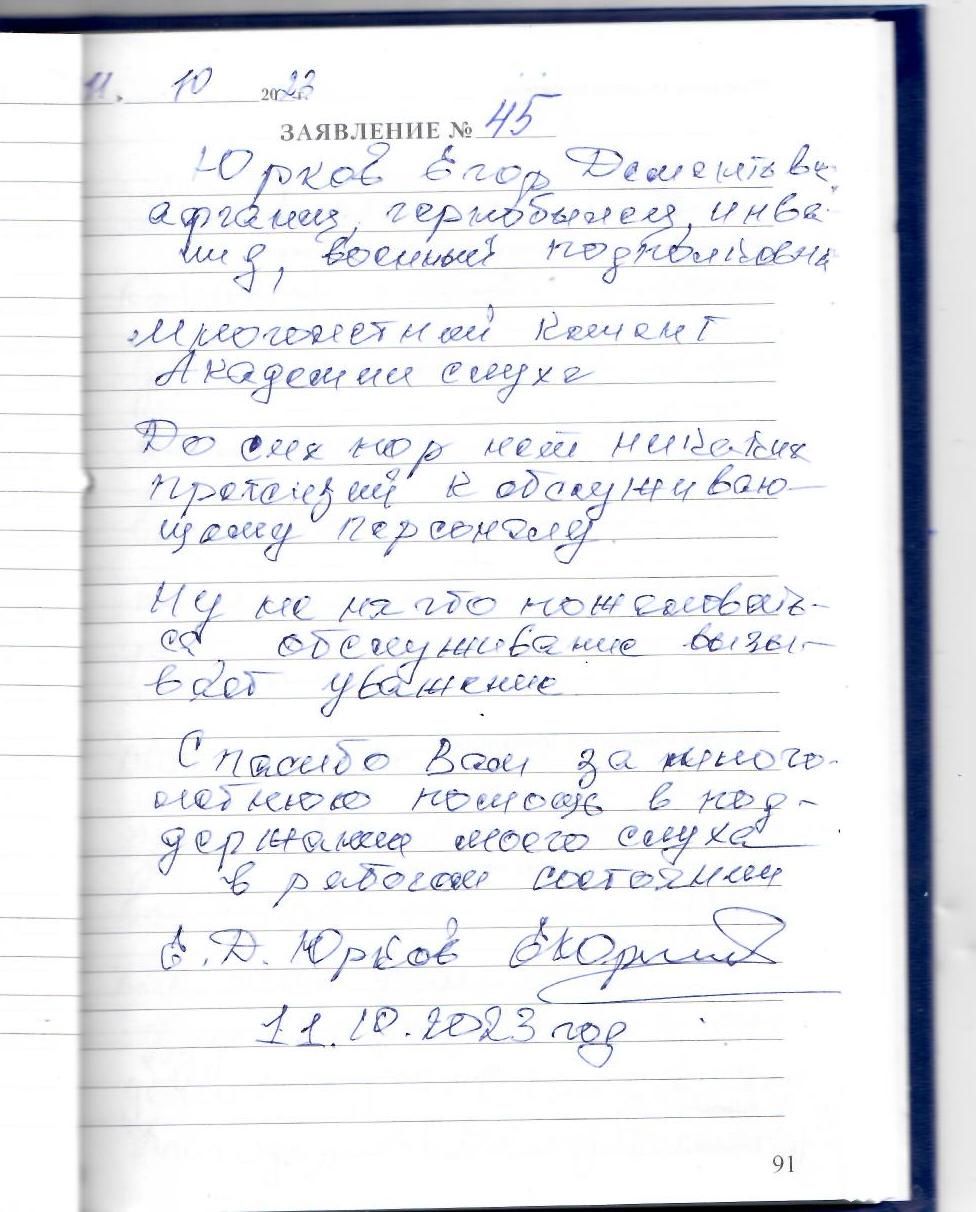 11. 10 2023г.
ЗАЯВЛЕНИЕ № 45
Юрков Егор Дементьев
афганец, чернобылец, инва-
лид, военный подполковник
многолетний клиент
Академии слуха
До сих пор нет никаких
претензий к обслуживаю-
щему персоналу.
Ну не на что пожаловать-
ся, обслуживание вызы-
вает уважение
Спасибо Вам за много-
летнюю помощь в под-
держании моего слуха
в рабочем состоянии
Е.Д. Юрков
11.10.2023 год
91